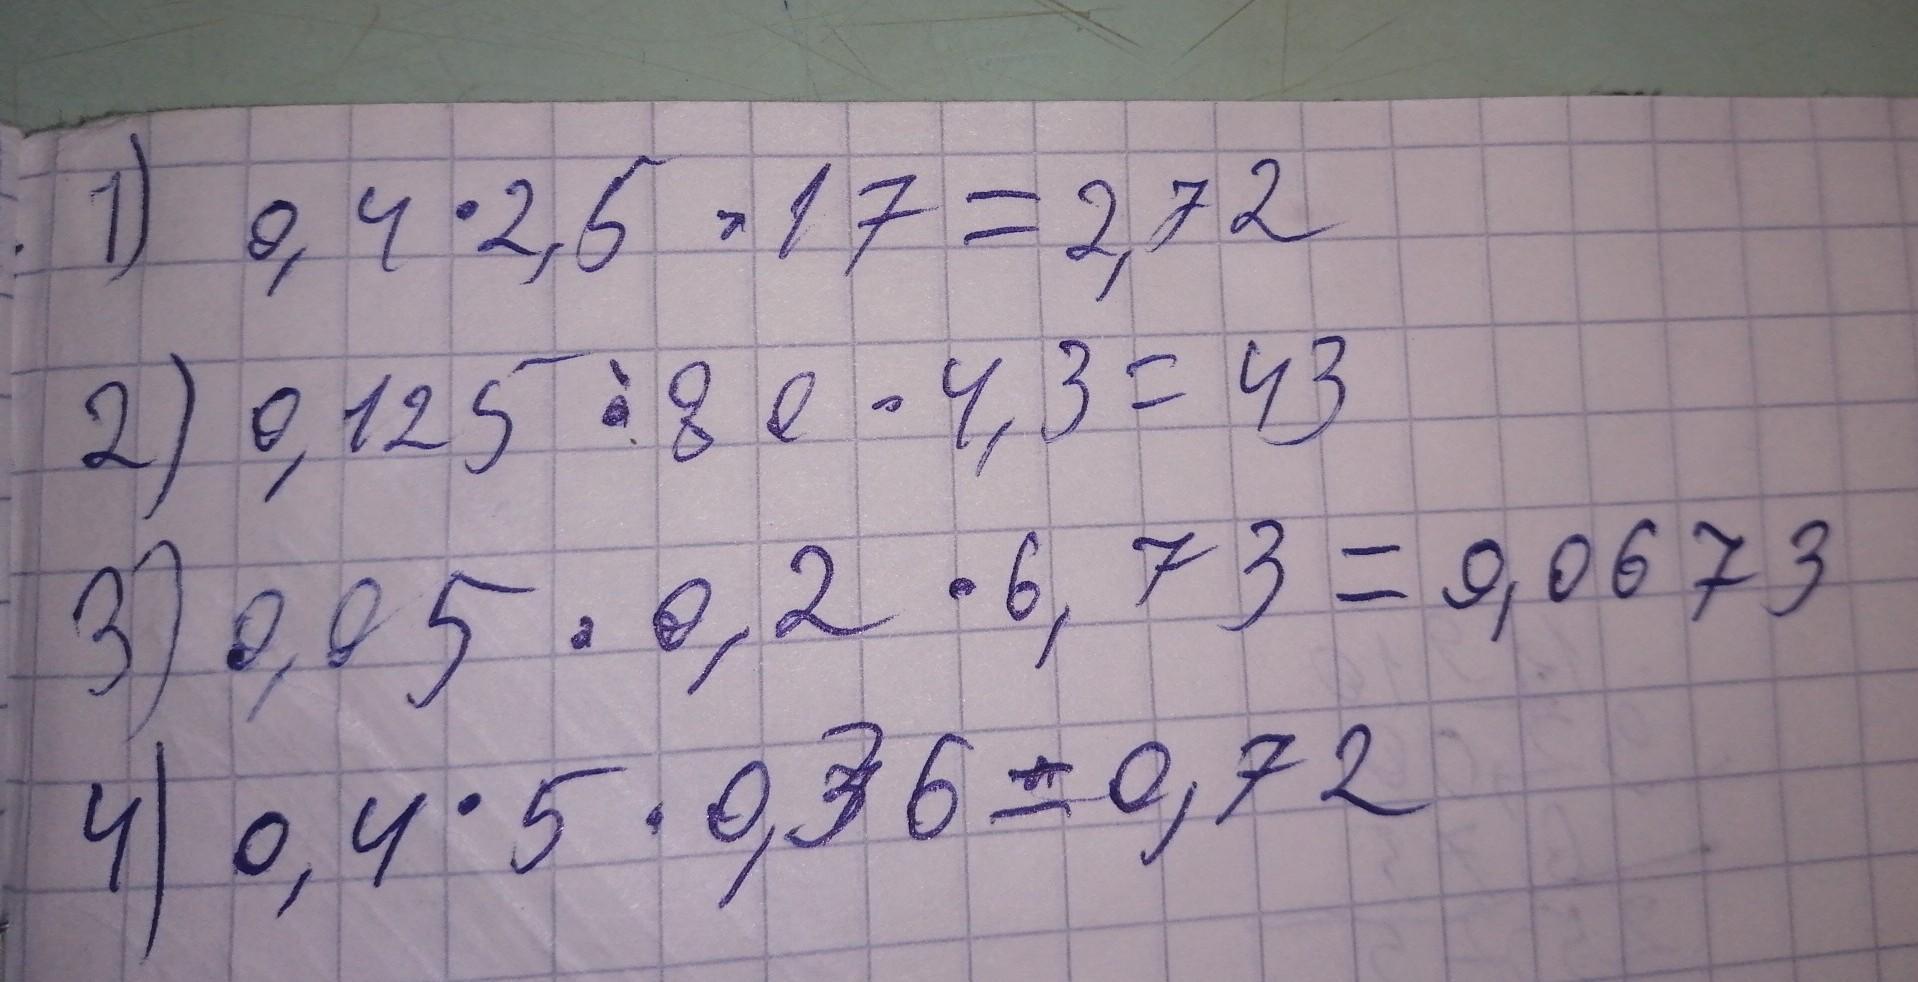 1) 0,4·2,5·17=2,72
2) 0,125:80·4,3=43
3) 0,05·0,2·6,73=0,0673
4) 0,4·5·0,36=0,72